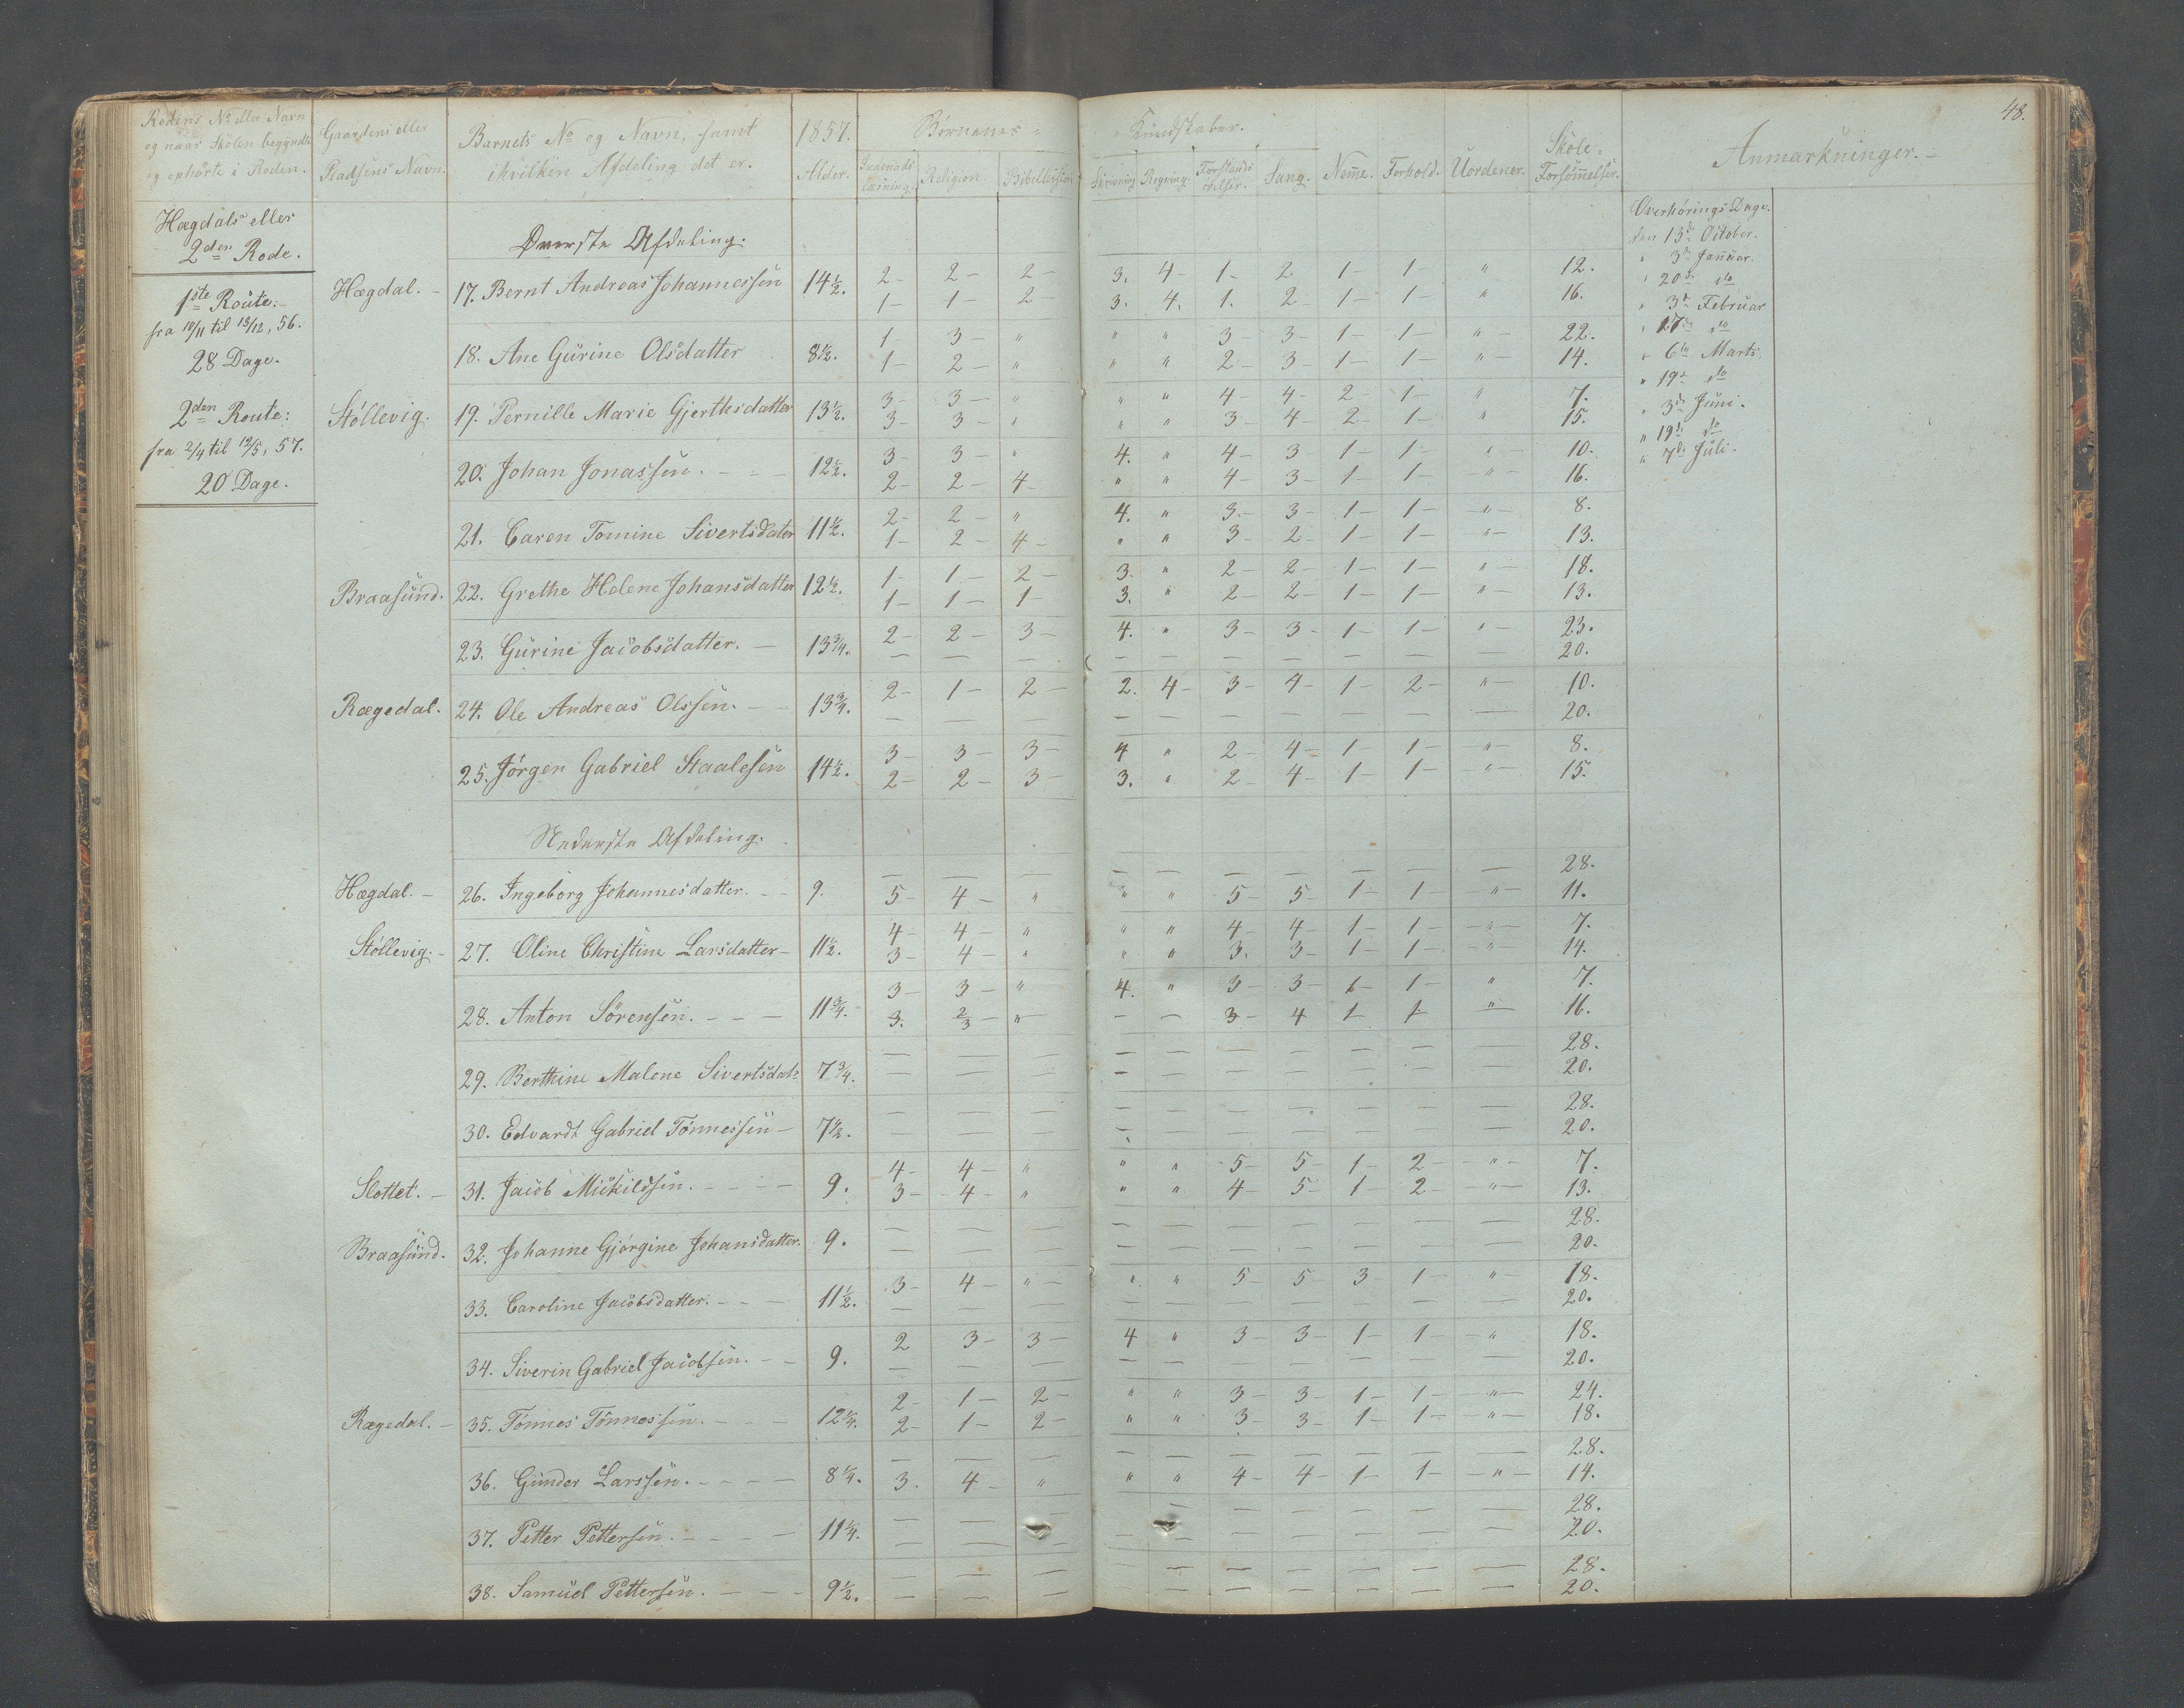 48.
Rodens No eller Navn og naar Skolen begyndte og ophörte i Roden.
Gaardens eller Pladsens Navn.
Barnets No og Navn, samt ihvilken Afdeling det er.
1857. Alder.
Börnenes Kundskaber.
Indenads læsning. Religion. Bibelhistorie Skrivning. Regning. Forstands övelser. Sang. Nem̄e. Forhold. Uordener. Skole-Forsöm̄elser.
Anmærkninger.
Hægdals eller
2den Rode.
1ste Route:
fra 10/11 til 13/12, 56.
28 Dage.
2den Route:
fra 2/4 til 12/5, 57.
20 Dage.
Överste Afdeling.
Hægdal. 17. Bernt Andreas Johannessen 14½. 2 2 2 3. 4 1 2 1 1 " 12.
1 1 2 3. 4. 1. 2 1 1 " 16.
18. Ane Gurine Olsdatter 8½. 1 3 " " " 3 3 1 1 " 22.
1 2 " " " 2 3 1 1 " 14.
Stöllevig. 19. Pernille Marie Gjerthsdatter 13½. 3 3 " " " 4 4 2 1 " 7.
3 3 " " " 3 4 2 1 " 15.
20. Johan Jonassen. 12½. 3 3 " 4. " 4 3 1 1 " 10.
2 2 4 " " 4 3 1 1 " 16.
21. Caren Tomine Sivertsdater 11½. 2 2 " 4. " 3 3 1 1 " 8.
1 2 4 " " 3 2 1 1 " 13.
Braasund. 22. Grethe Helene Johansdatter 12½. 1 1 2 3. " 2 2 1 1 " 18.
1 1 1 3. " 2 2 1 1 " 13.
23. Gurine Jacobsdatter. 13¾. 2 2 3 4. " 3 3 1 1 " 23.
— — — — — — — — — — 20.
Rægedal. 24. Ole Andreas Olssen. 13¾. 2 1 2 2. 4 3 4 1 2 " 10.
— — — — — — — — — 20.
25. Jörgen Gabriel Staalesen 14½. 3 3 3 4 " 2 4 1 1 " 8.
2 2 3 3. " 2 4 1 1 " 15.
Nederste Afdeling.
Hægdal. 26. Ingeborg Johannesdatter. 9. — — — — — — — — — — 28.
5 4 " " " 5 5 1 1 " 11.
Stöllevig. 27. Oline Christine Larsdatter 11½. 4 4 " " " 4 4 1 1 " 7.
3 4 " " " 3. 3 1 1 " 14.
28. Anton Sörensen. 11¾. 3 3 " 4. " 3 3 1 1 " 7.
3. 2/3 " — — 3 4 1 1 " 16.
29. Berthine Malene Sivertsdatr 7¾. — — — — — — — — — — 28.
— — — — — — — — — — 20.
30. Edvardt Gabriel Tönnessen 7½. — — — — — — — — — — 28.
— — — — — 20.
Slottet. 31. Jacob Mickilssen. 9. 4 4 " " " 5 5 1 2 " 7.
3 4 " " " 4 5 1 2 " 13.
Braasund. 32. Johanne Gjörgine Johansdatter. 9. — — — — — — — — — — 28.
— — — — — — — — — — 20.
33. Caroline Jacobsdatter. 11½. 3 4 " " " 5 5 3 1 " 18.
— — — — — — — — — 20.
34. Siverin Gabriel Jacobsen. 9. 2 3 3 4 " 3 3 1 1 " 18.
— — — — — — 20.
Rægedal. 35. Tönnes Tönnessen. 12¼. 2 1 2 " " 3 3 1 1 " 24.
2 1 2 " " 3 3 1 1 " 18.
36. Gunder Larssen. 8¼. — — — — — — — — — — 28.
3. 4 " " " 4 4 1 1 " 14.
37. Petter Pettersen. 11¼. — — — — — — — — 28.
— — — — — — 20.
38. Samuel Pettersen. 9½. — — — — — — — — — — 28.
— — — — — — — — — 20.
Overhörings Dage.
den 13de October.
" 3de Januar.
" 20de do
" 3de Februar
" 17de do
" 6te Marts.
" 19de do
" 3de Juni.
" 19de do
" 7de Juli.